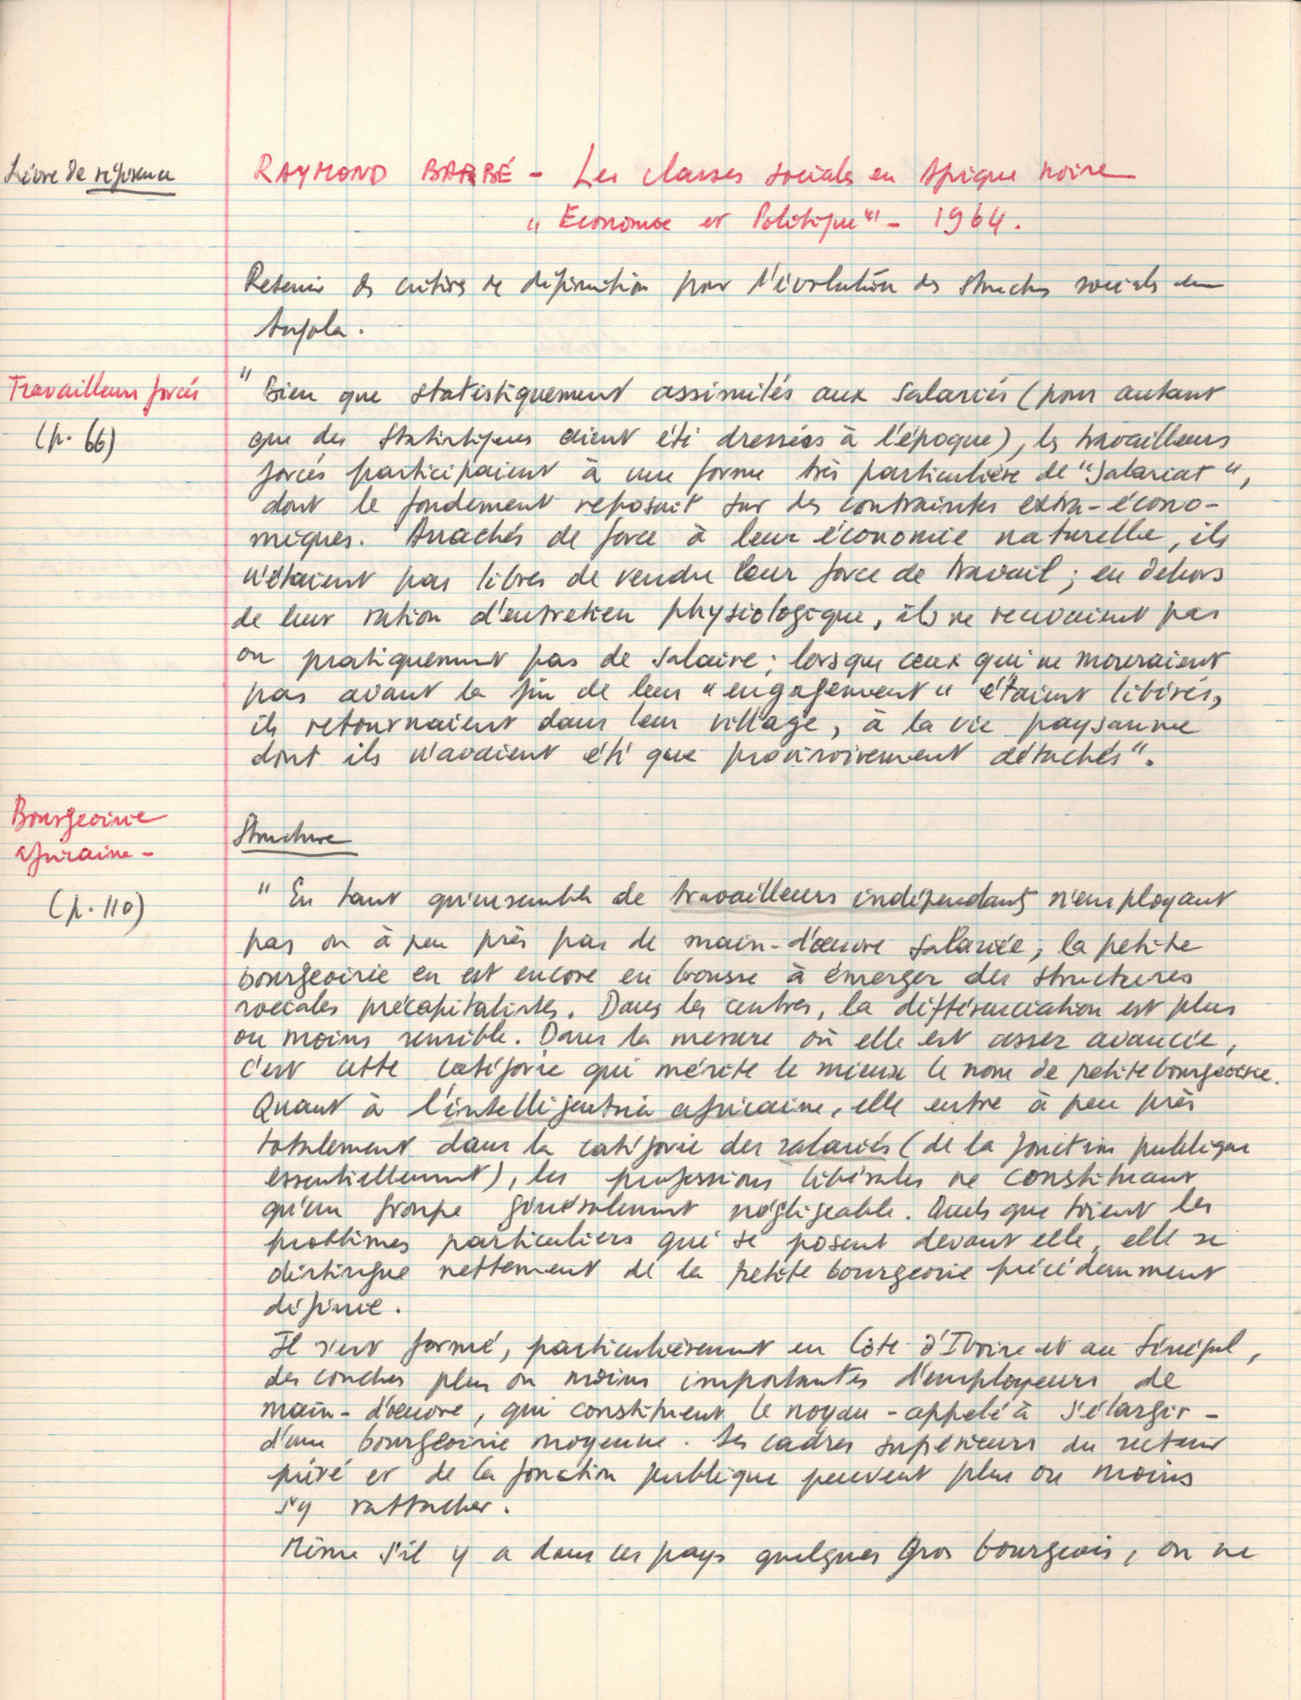 Livre de référence
RAYMOND BARBÉ - Les classes sociales en Afrique noire
"Economie et Politique" - 1964.
Retenir des critères de définition pour l'évolution des structures sociales en
Angola.
Travailleurs forcés
(p. 66)
"Bien que statistiquement assimilés aux salariés (pour autant
que des statistiques aient été dressées à l'époque), les travailleurs
forcés participaient à une forme très particulière de "salariat",
dont le fondement reposait sur des contraintes extra-écono-
miques. Arrachés de force à leur économie naturelle, ils
n'étaient pas libres de vendre leur force de travail ; en dehors
de leur ration d'entretien physiologique, ils ne recevaient pas
ou pratiquement pas de salaire ; lorsque ceux qui ne mouraient
pas avant la fin de leur "engagement" étaient libérés,
ils retournaient dans leur village, à la vie paysanne
dont ils n'avaient été que provisoirement détachés".
Bourgeoisie
africaine -
(p. 110)
Structure
"En tant qu'ensemble de travailleurs indépendants n'employant
pas ou à peu près pas de main-d'œuvre salariée, la petite
bourgeoisie en est encore en brousse à émerger des structures
sociales précapitalistes. Dans les centres, la différenciation est plus
ou moins sensible. Dans la mesure où elle est assez avancée,
c'est cette catégorie qui mérite le mieux le nom de petite bourgeoisie.
Quant à l'intelligentsia africaine, elle entre à peu près
totalement dans la catégorie des salariés (de la fonction publique
essentiellement), les professions libérales ne constituant
qu'un groupe généralement négligeable. Quels que soient les
problèmes particuliers qui se posent devant elle, elle se
distingue nettement de la petite bourgeoisie précédemment
définie.
Il s'est formé, particulièrement en Côte d'Ivoire et au Sénégal,
des couches plus ou moins importantes d'employeurs de
main-d'œuvre, qui constituent le noyau - appelé à s'élargir -
d'une bourgeoisie moyenne. Les cadres supérieurs du secteur
privé et de la fonction publique peuvent plus ou moins
s'y rattacher.
Même s'il y a dans ces pays quelques gros bourgeois, on ne